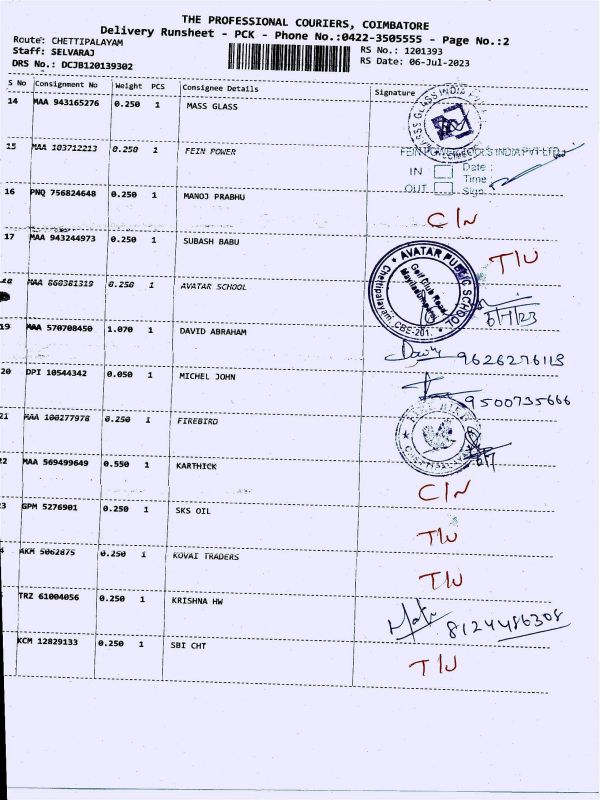 THE PROFESSIONAL COURIERS, COIMBATORE
Delivery Runsheet - PCK - Phone No.:0422-3505555 - Page No.:2
Route: CHETTIPALAYAM
Staff: SELVARAJ
DRS No.: DCJB120139302
RS No.: 1201393
RS Date: 06-Jul-2023
S No Consignment No Weight PCS Consignee Details Signature
14 MAA 943165276 0.250 1 MASS GLASS
MASS GLASS INDIA
15 MAA 103712213 0.250 1 FEIN POWER
FEIN POWER TOOLS INDIA PVT LTD
IN Date :
Time :
OUT Sign
16 PNQ 756824648 0.250 1 MANOJ PRABHU C/N
17 MAA 943244973 0.250 1 SUBASH BABU T/U
18 MAA 860381319 0.250 1 AVATAR SCHOOL
AVATAR PUBLIC SCHOOL
Golf Club Road
Chettipalayam, CBE-201.
6/7/23
19 MAA 570708450 1.070 1 DAVID ABRAHAM
9626276113
20 DPI 10544342 0.050 1 MICHEL JOHN
9500735666
21 MAA 100277978 0.250 1 FIREBIRD
6/7
22 MAA 569499649 0.550 1 KARTHICK C/N
3 GPM 5276901 0.250 1 SKS OIL T/U
4 AKM 5062875 0.250 1 KOVAI TRADERS T/U
TRZ 61004056 0.250 1 KRISHNA HW
8124486308
KCM 12829133 0.250 1 SBI CHT T/U